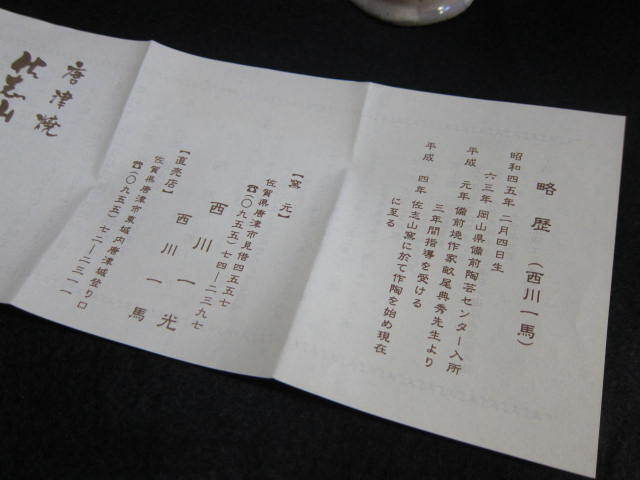 略歴（西川一馬）
昭和四五年 二月四日生
六三年 岡山県備前陶芸センター入所
平成 元年 備前焼作家畝尾典秀先生より
三年間指導を受ける
平成 四年 佐志山窯に於て作陶を始め現在
に至る
【窯元】
佐賀県唐津市見借四五五七
☎(〇九五五)七四―二三九七
西川一光
【直売店】
佐賀県唐津市東城内唐津城登り口
☎(〇九五五)七二―二三一一
西川一馬
唐津焼
佐志山